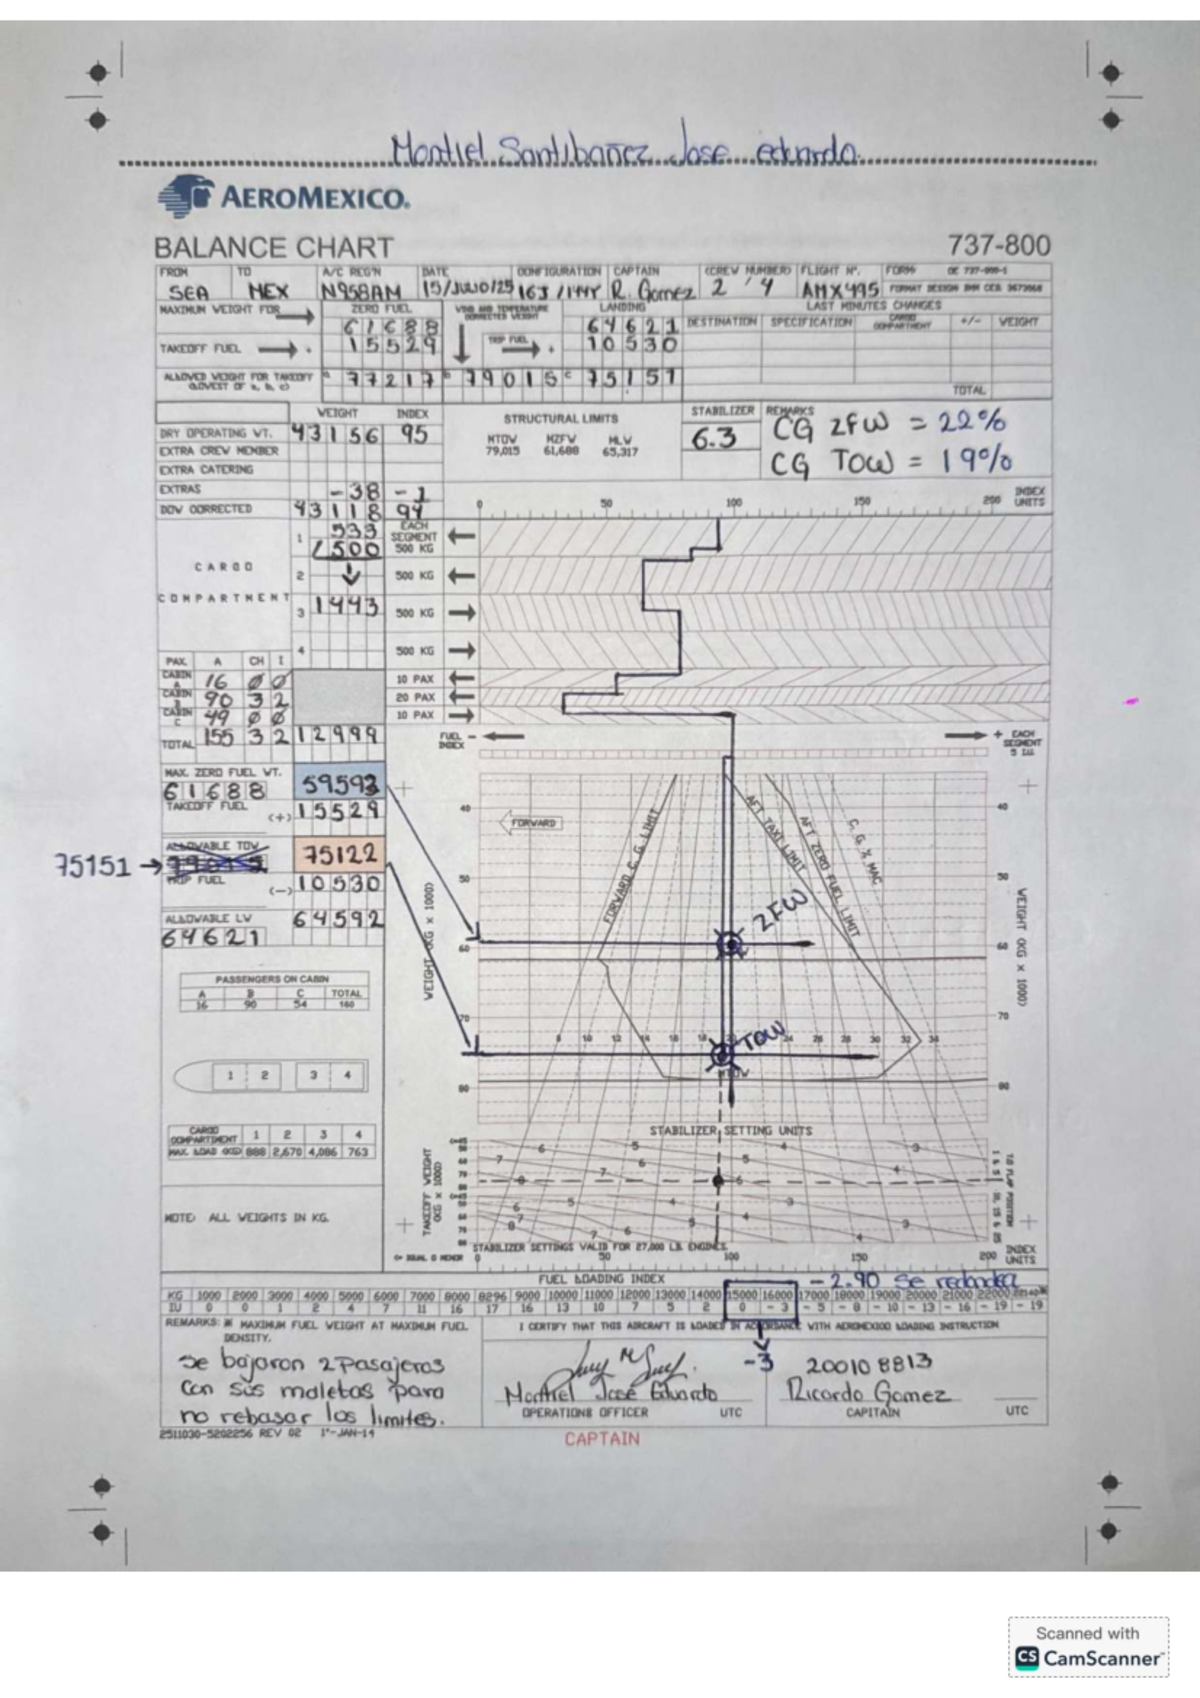 Montiel Santibañez Jose eduardo.
AEROMEXICO.
BALANCE CHART 737-800
FROM TO A/C REG'N DATE CONFIGURATION CAPTAIN (CREW NUMBER) FLIGHT Nº. FORM
SEA MEX N958AM 15/JULIO/25 16J/144Y R. Gomez 2 / 4 AMX495
MAXIMUM WEIGHT FOR ZERO FUEL WIND AND TEMPERATURE CORRECTED WEIGHT LANDING LAST MINUTES CHANGES
61688 64621 DESTINATION SPECIFICATION CARGO COMPARTMENT +/- WEIGHT
TAKEOFF FUEL + 15529 TRIP FUEL + 10530
ALLOWED WEIGHT FOR TAKEOFF (LOWEST OF a, b, c) a 77217 b 79015 c 75151
TOTAL
WEIGHT INDEX STRUCTURAL LIMITS STABILIZER REMARKS
DRY OPERATING WT. 43156 95 MTOW MZFW MLW 6.3 CG ZFW = 22%
79,015 61,688 65,317
EXTRA CREW MEMBER
EXTRA CATERING CG TOW = 19%
EXTRAS -38 -1
DOW CORRECTED 43118 94 0 50 100 150 200 INDEX UNITS
CARGO COMPARTMENT
1 533 EACH SEGMENT
1500 500 KG
2 500 KG
3 1443 500 KG
4 500 KG
PAX. A CH I
CABIN A 16 0 0 10 PAX
CABIN B 90 3 2 20 PAX
CABIN C 49 0 0 10 PAX
TOTAL 155 3 2 12999 FUEL INDEX - + EACH SEGMENT 5 I.U.
MAX. ZERO FUEL WT. 59593
61688
TAKEOFF FUEL (+) 15529
ALLOWABLE TOW 75122
75151 → 79015
TRIP FUEL (-) 10530
ALLOWABLE LW 64592
64621
40 50 60 70 80
WEIGHT (KG x 1000)
FORWARD
FORWARD C. G. LIMIT
AFT TAXI LIMIT
AFT ZERO FUEL LIMIT
C. G. % MAC
ZFW
TOW
8 10 12 14 16 18 24 26 28 30 32 34
MTOW
40 50 60 70 80
WEIGHT (KG x 1000)
PASSENGERS ON CABIN
A B C TOTAL
16 90 54 160
1 2 3 4
CARGO COMPARTIMENT 1 2 3 4
MAX. LOAD (KG) 888 2,670 4,086 763
NOTE: ALL WEIGHTS IN KG.
STABILIZER SETTING UNITS
TAKEOFF WEIGHT (KG x 1000)
TO FLAP POSITION
STABILIZER SETTINGS VALID FOR 27,000 LB. ENGINES.
<= EQUAL O MENOR 0 50 100 150 200 INDEX UNITS
FUEL LOADING INDEX -2.90 se redondea
KG 1000 2000 3000 4000 5000 6000 7000 8000 8296 9000 10000 11000 12000 13000 14000 15000 16000 17000 18000 19000 20000 21000 22000 22140*
IU 0 0 1 2 4 7 11 16 17 16 13 10 7 5 2 0 -3 -5 -8 -10 -13 -16 -19 -19
REMARKS: * MAXIMUM FUEL WEIGHT AT MAXIMUM FUEL DENSITY.
I CERTIFY THAT THIS AIRCRAFT IS LOADED IN ACCORDANCE WITH AEROMEXICO LOADING INSTRUCTION
-3 20010 8813
Se bajaron 2 Pasajeros
Con sus maletas para
no rebasar los limites.
Montiel José Eduardo Ricardo Gomez
OPERATIONS OFFICER UTC CAPITAIN UTC
2511030-5202256 REV 02 1º-JAN-14
CAPTAIN
Scanned with
CS CamScanner